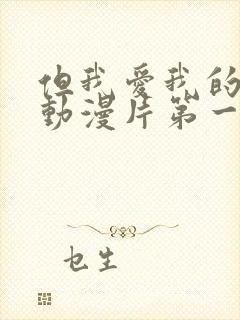 但我愛我的
動漫片第一
乜生